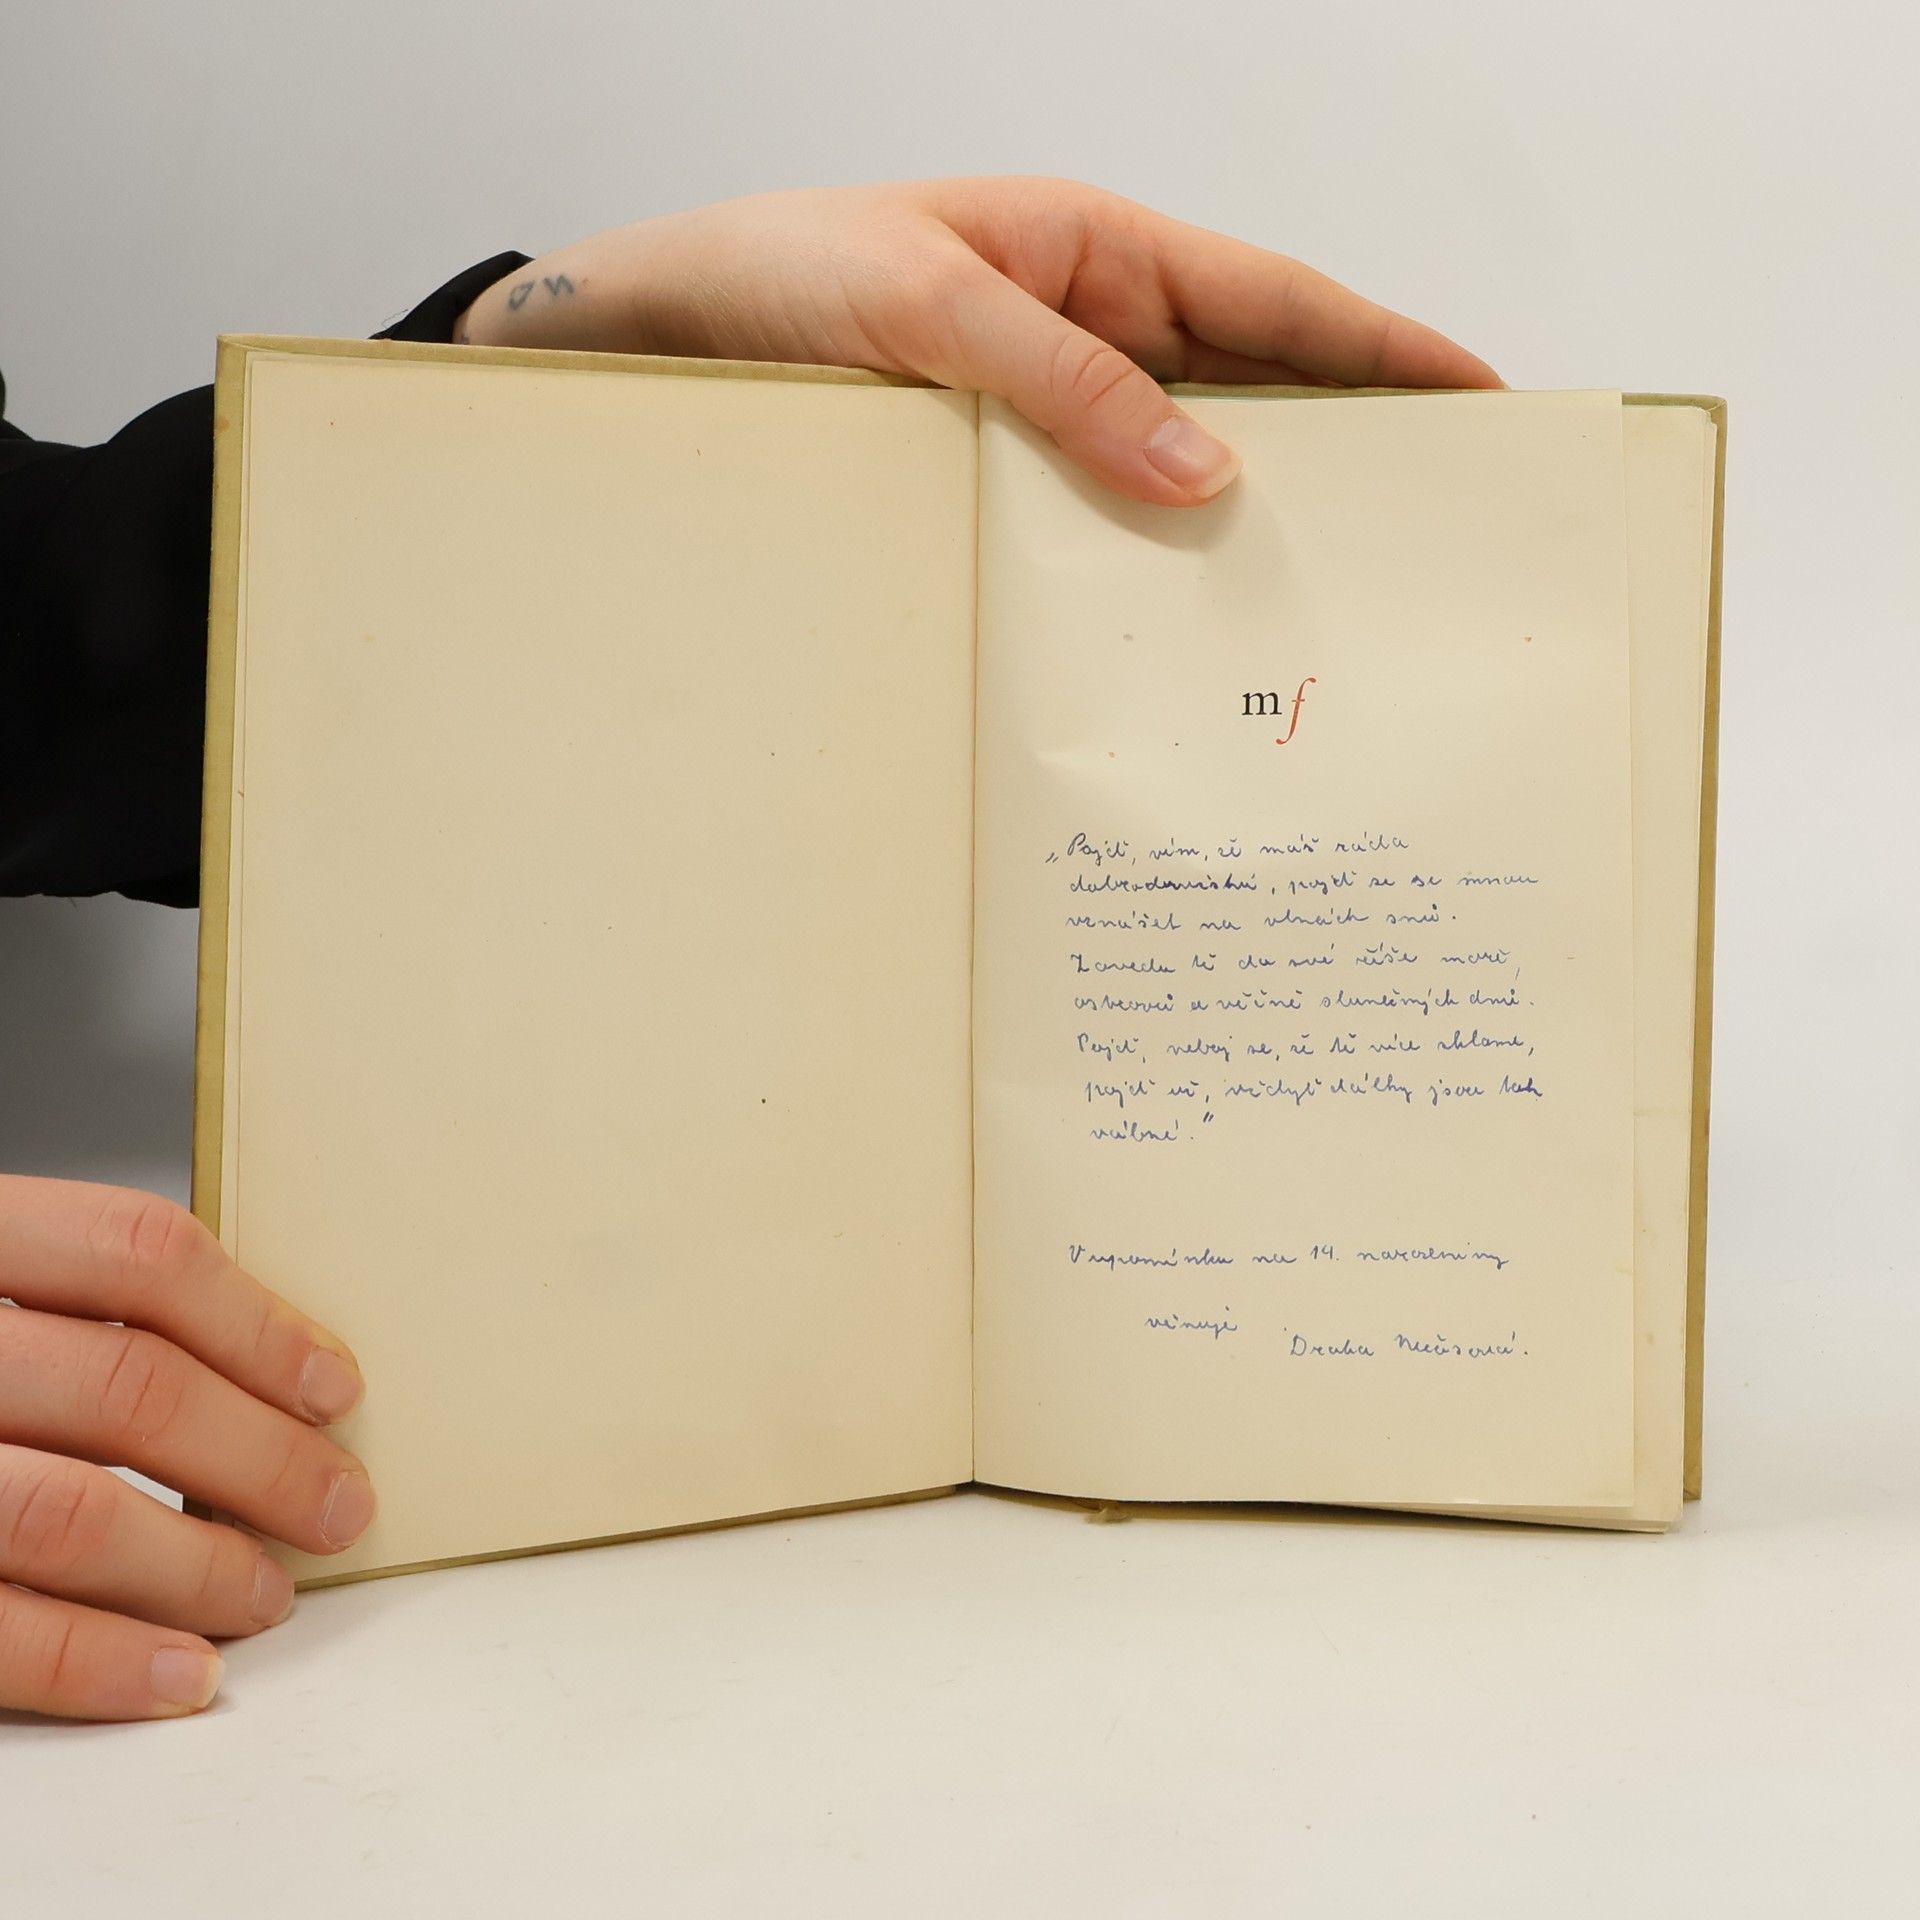 mf
„Pojď, vím, že máš ráda
dobrodružství, pojď se se mnou
vznášet na vlnách snů.
Zavedu tě do své říše moře,
ostrovů a věčně slunečných dnů.
Pojď, neboj se, že tě více zklame,
pojď už, vždyť dálky jsou tak
vábné."
V upomínku na 14. narozeniny
věnuje
Draha